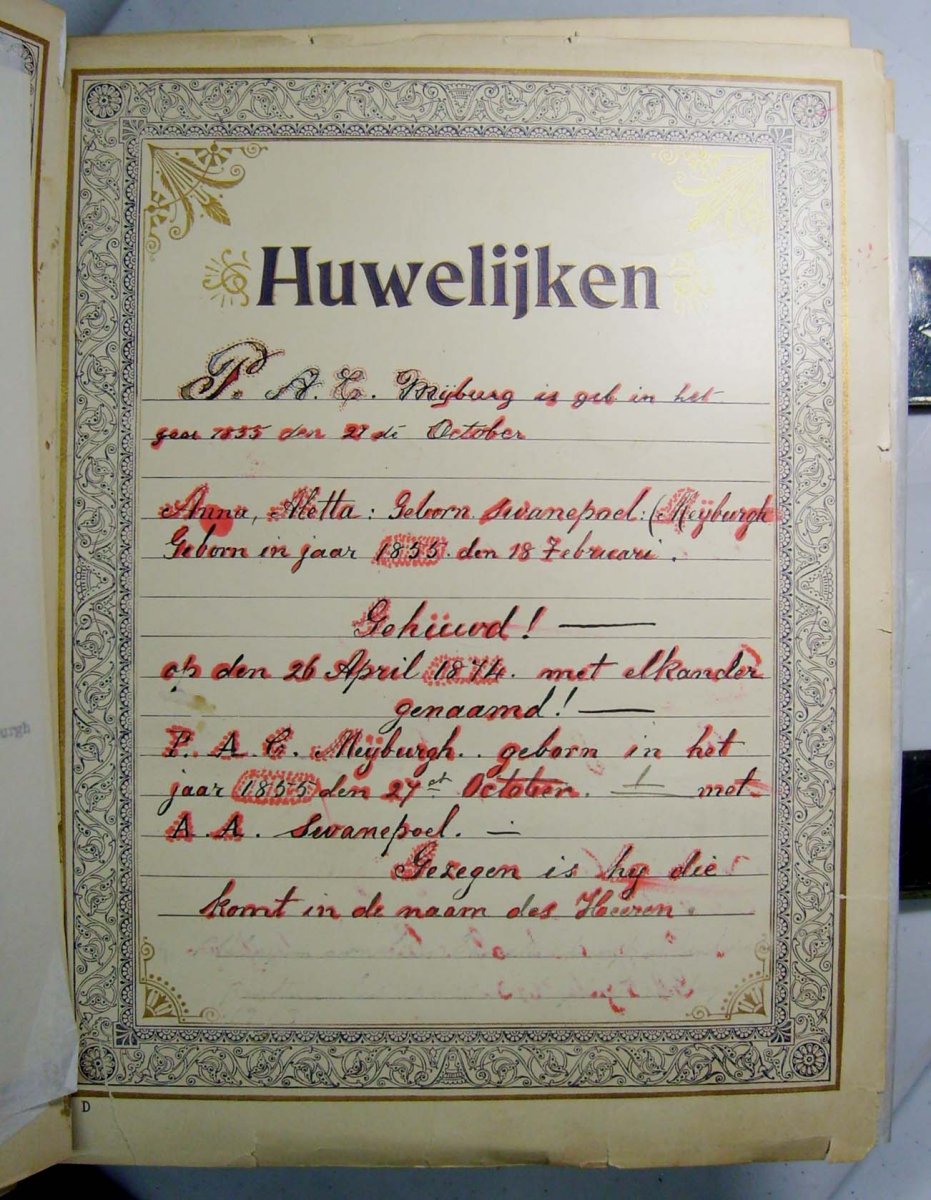 Huwelijken
P. A. C. Mijburg is geb in het
jaar 1855 den 27 de October
Anna, Aletta: Geborn Swanepoel: (Meijburgh
Geborn in jaar 1855 den 18 Februari.
Gehüwd! —
op den 26 April 1874. met elkander
genaamd! —
P. A. C. Meijburgh.. geborn in het
jaar 1855 den 27st October. — met
A. A. Swanepoel. —
Gezegen is hy die
komt in de naam des Heeren.
D